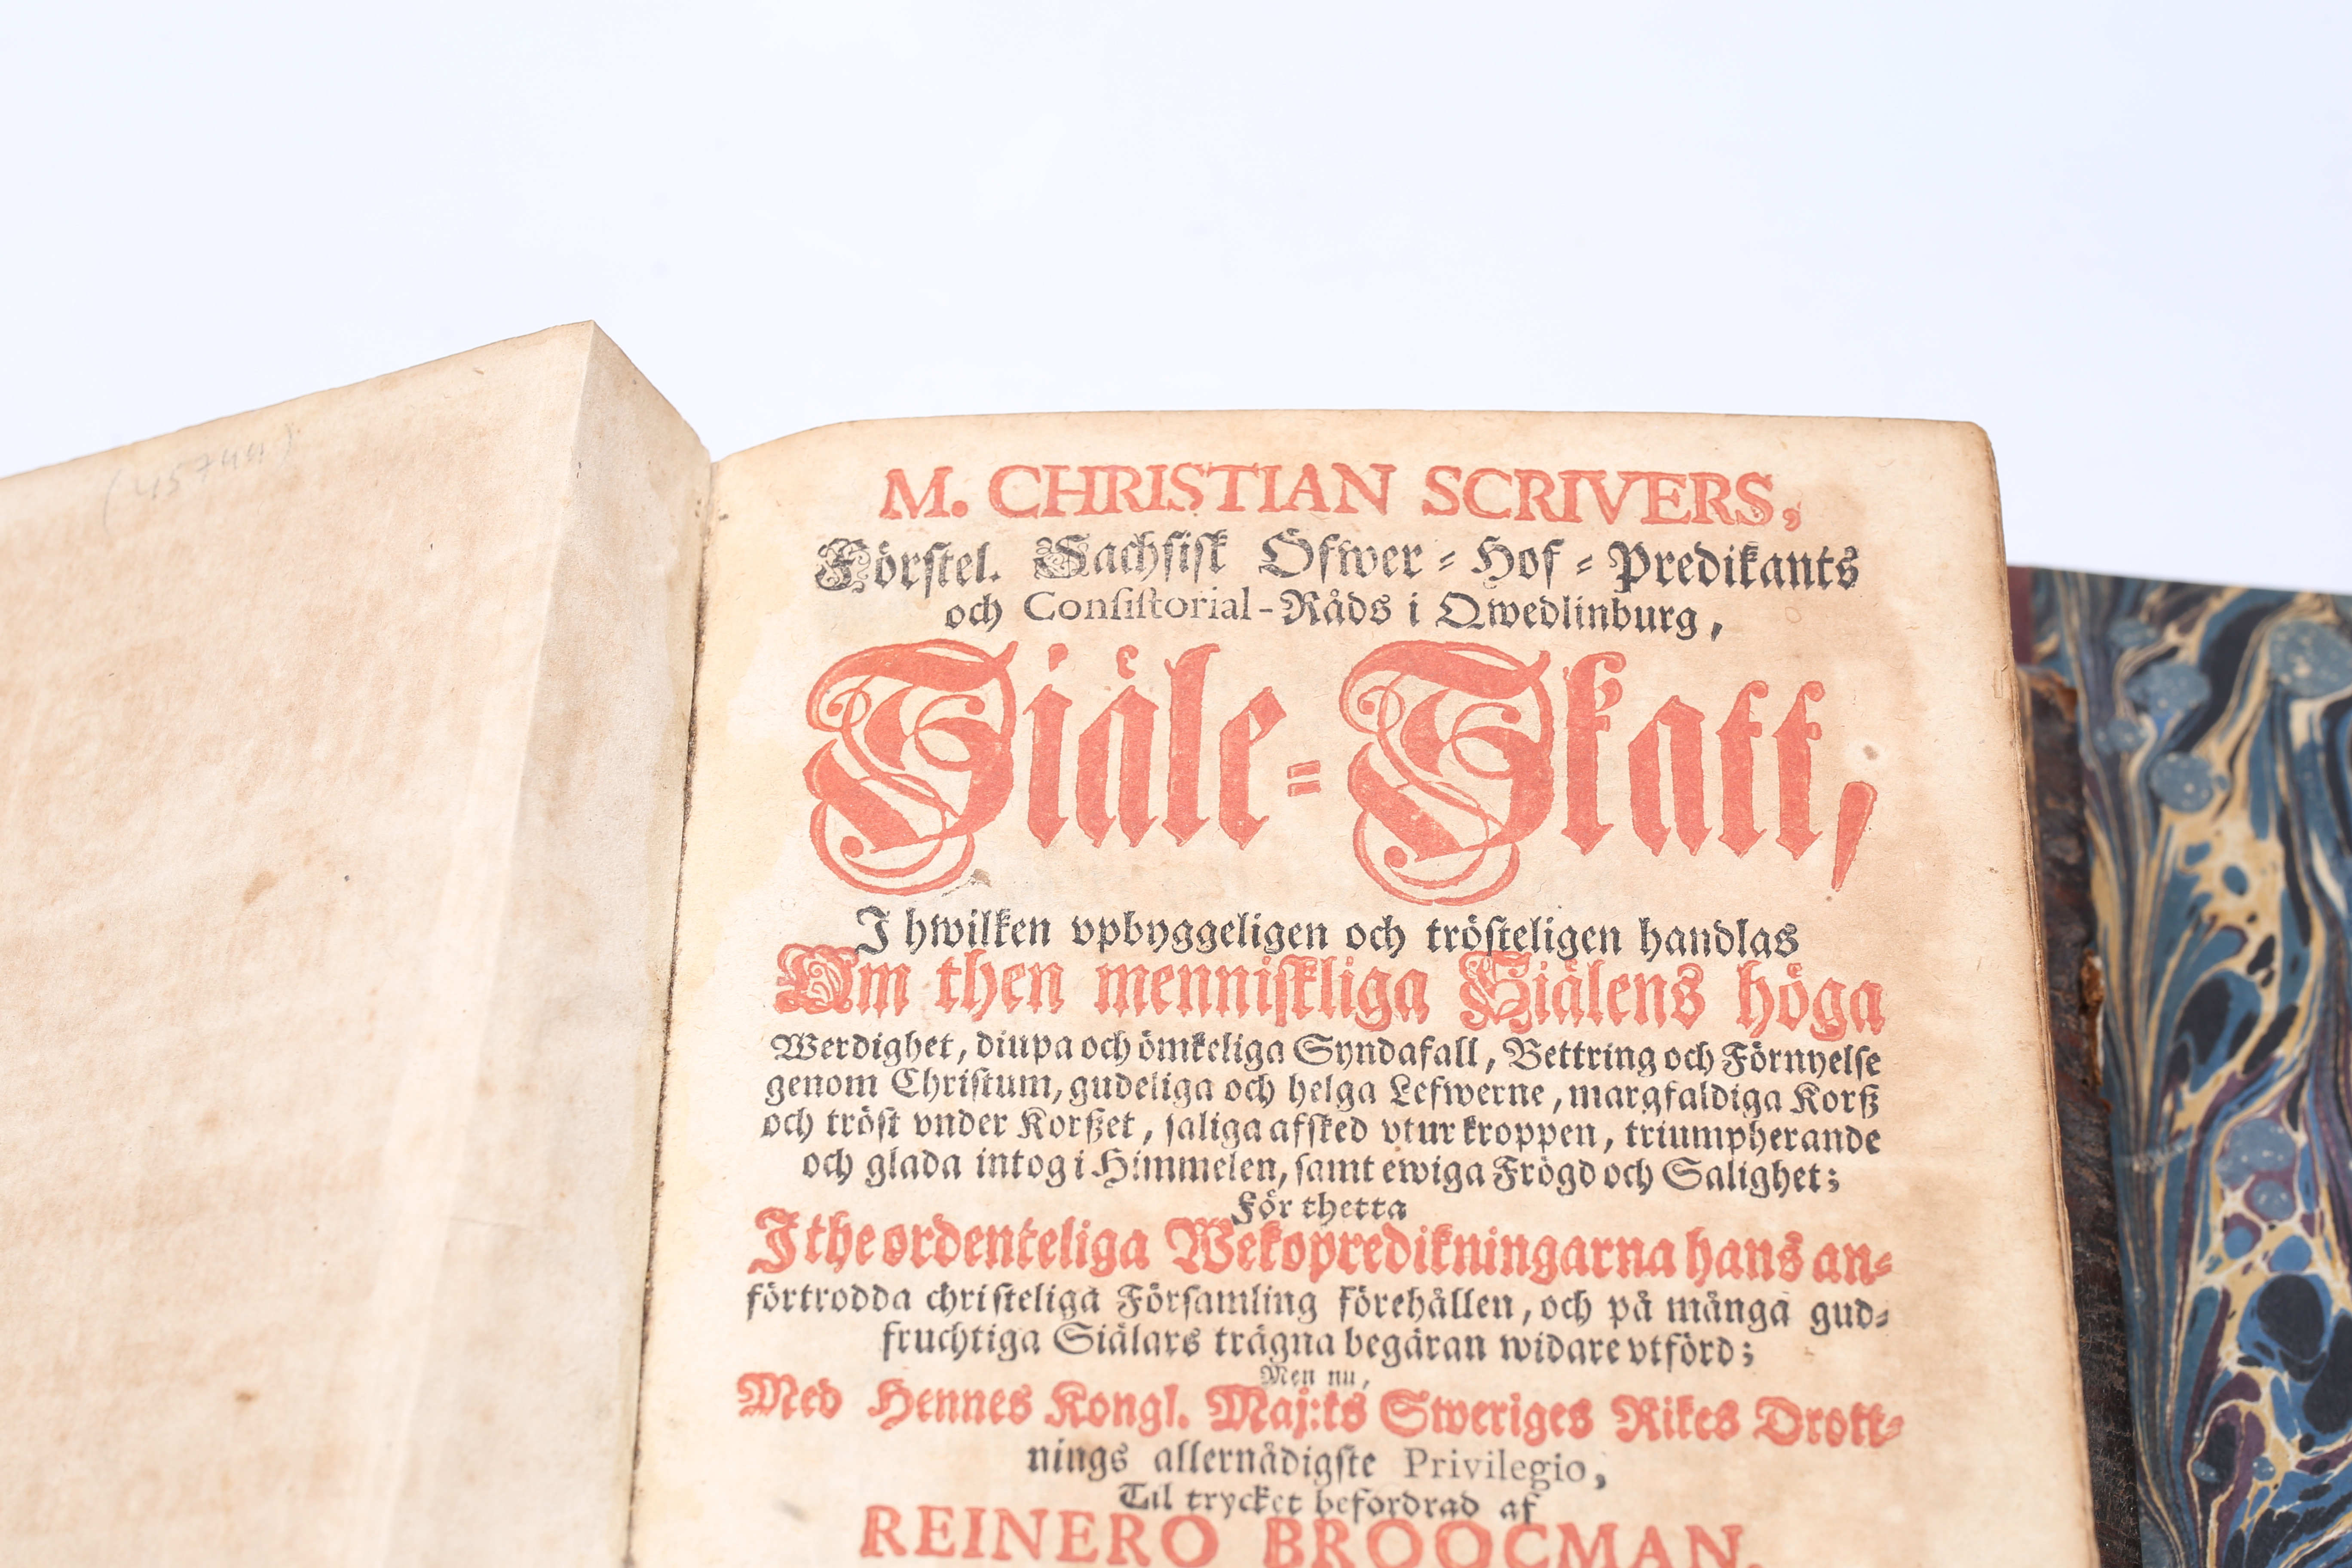 (45744)
M. CHRISTIAN SCRIVERS,
Förstel. Sachsisk Öfwer-Hof-Predikants
och Consistorial-Råds i Qwedlinburg,
Siäle-Skatt,
I hwilken vpbyggeligen och trösteligen handlas
Om then menniskliga Siälens höga
Werdighet, diupa och ömkeliga Syndafall, Bettring och Förnyelse
genom Christum, gudeliga och helga Lefwerne, margfaldiga Korß
och tröst vnder Korßet, saliga afsked vtur kroppen, triumpherande
och glada intog i Himmelen, samt ewiga Frögd och Salighet;
För thetta
I the ordenteliga Wekopredikningarna hans an-
förtrodda christeliga Församling förehållen, och på många gud-
fruchtiga Siälars trägna begäran widare vtförd;
Men nu,
Med Hennes Kongl. Maj:ts Sweriges Rikes Drott-
nings allernådigste Privilegio,
Til trycket befordrad af
REINERO BROOCMAN.